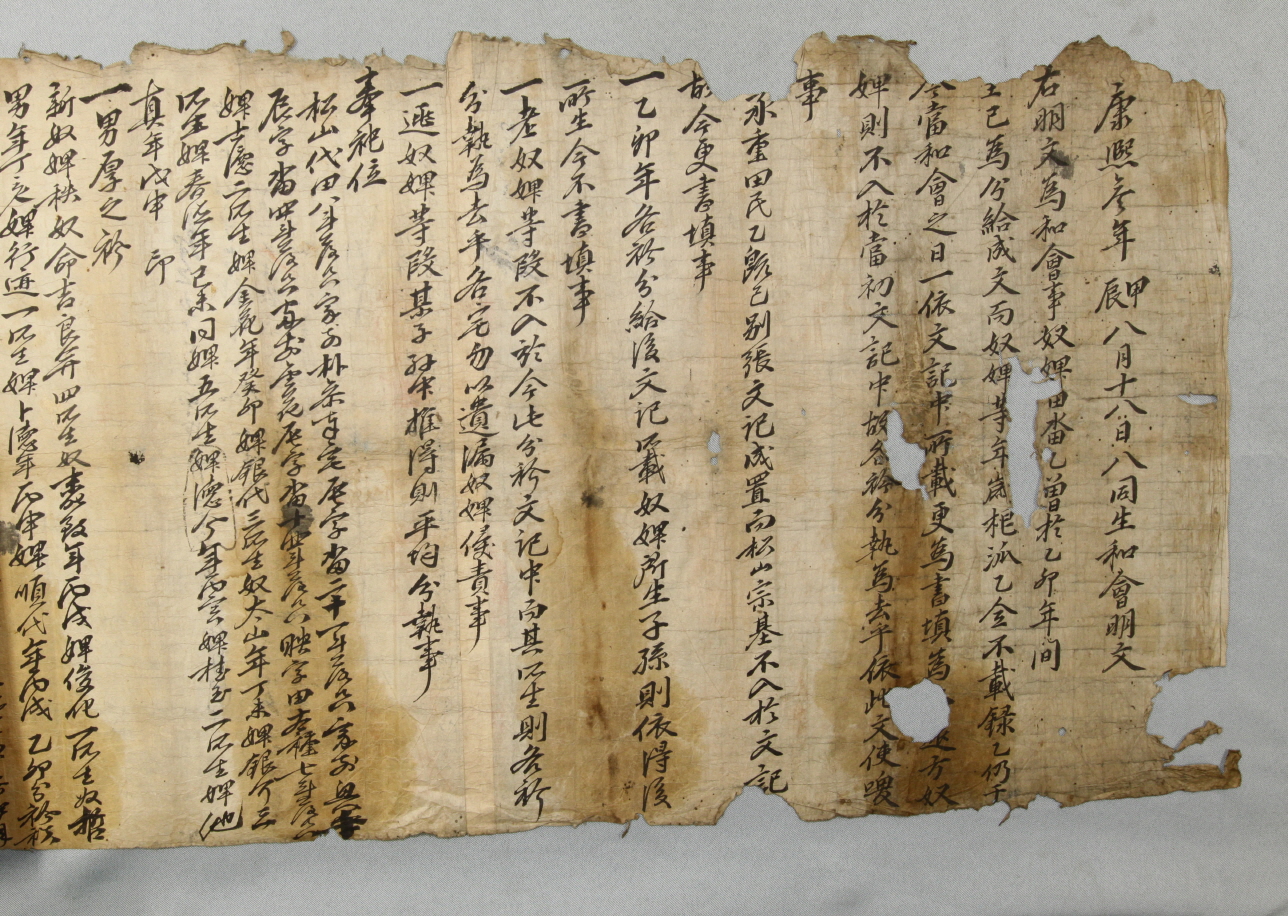 康熙參年甲辰八月十八日八同生和會明文
右明文爲和會事奴婢田畓乙曾於乙卯年間
已爲分給成文而奴婢等年歲根派乙全不載錄乙仍于
今當和會之日一依文記中所載更爲書塡爲 遐方奴
婢則不入於當初文記中故各衿分執爲去乎依此文使喚
事
承重田民乙段已別張文記成置而松山宗基不入於文記
故今更書塡事
一乙卯年各衿分給後文記所載奴婢所生子孫則依得後
所生今不書塡事
一老奴婢等段不入於今此分衿文記中而其所生則各衿
分執爲去乎各宅勿以遺漏奴婢侵責事
一遐奴婢等段某子孫中推得則平均分執事
奉祀位
松山代田 斗落只家前朴 宅 字畓二十一斗落只家前
辰字畓四斗落只 字畓十四斗落只映字田 種七斗落只
婢士德二所生婢金花年癸卯婢銀代三所生奴太山年丁未婢銀今三
所生婢春 年己未同婢五所生婢德今年丙寅婢桂玉二所生婢他
眞年戊申 印
一男厚之衿
新奴婢秩奴命吉良幷四所生奴 致年丙戌婢俊化一所生奴哲
男年丁亥婢行進一所生婢卜德年丙申婢順代年丙戌乙卯分衿秩